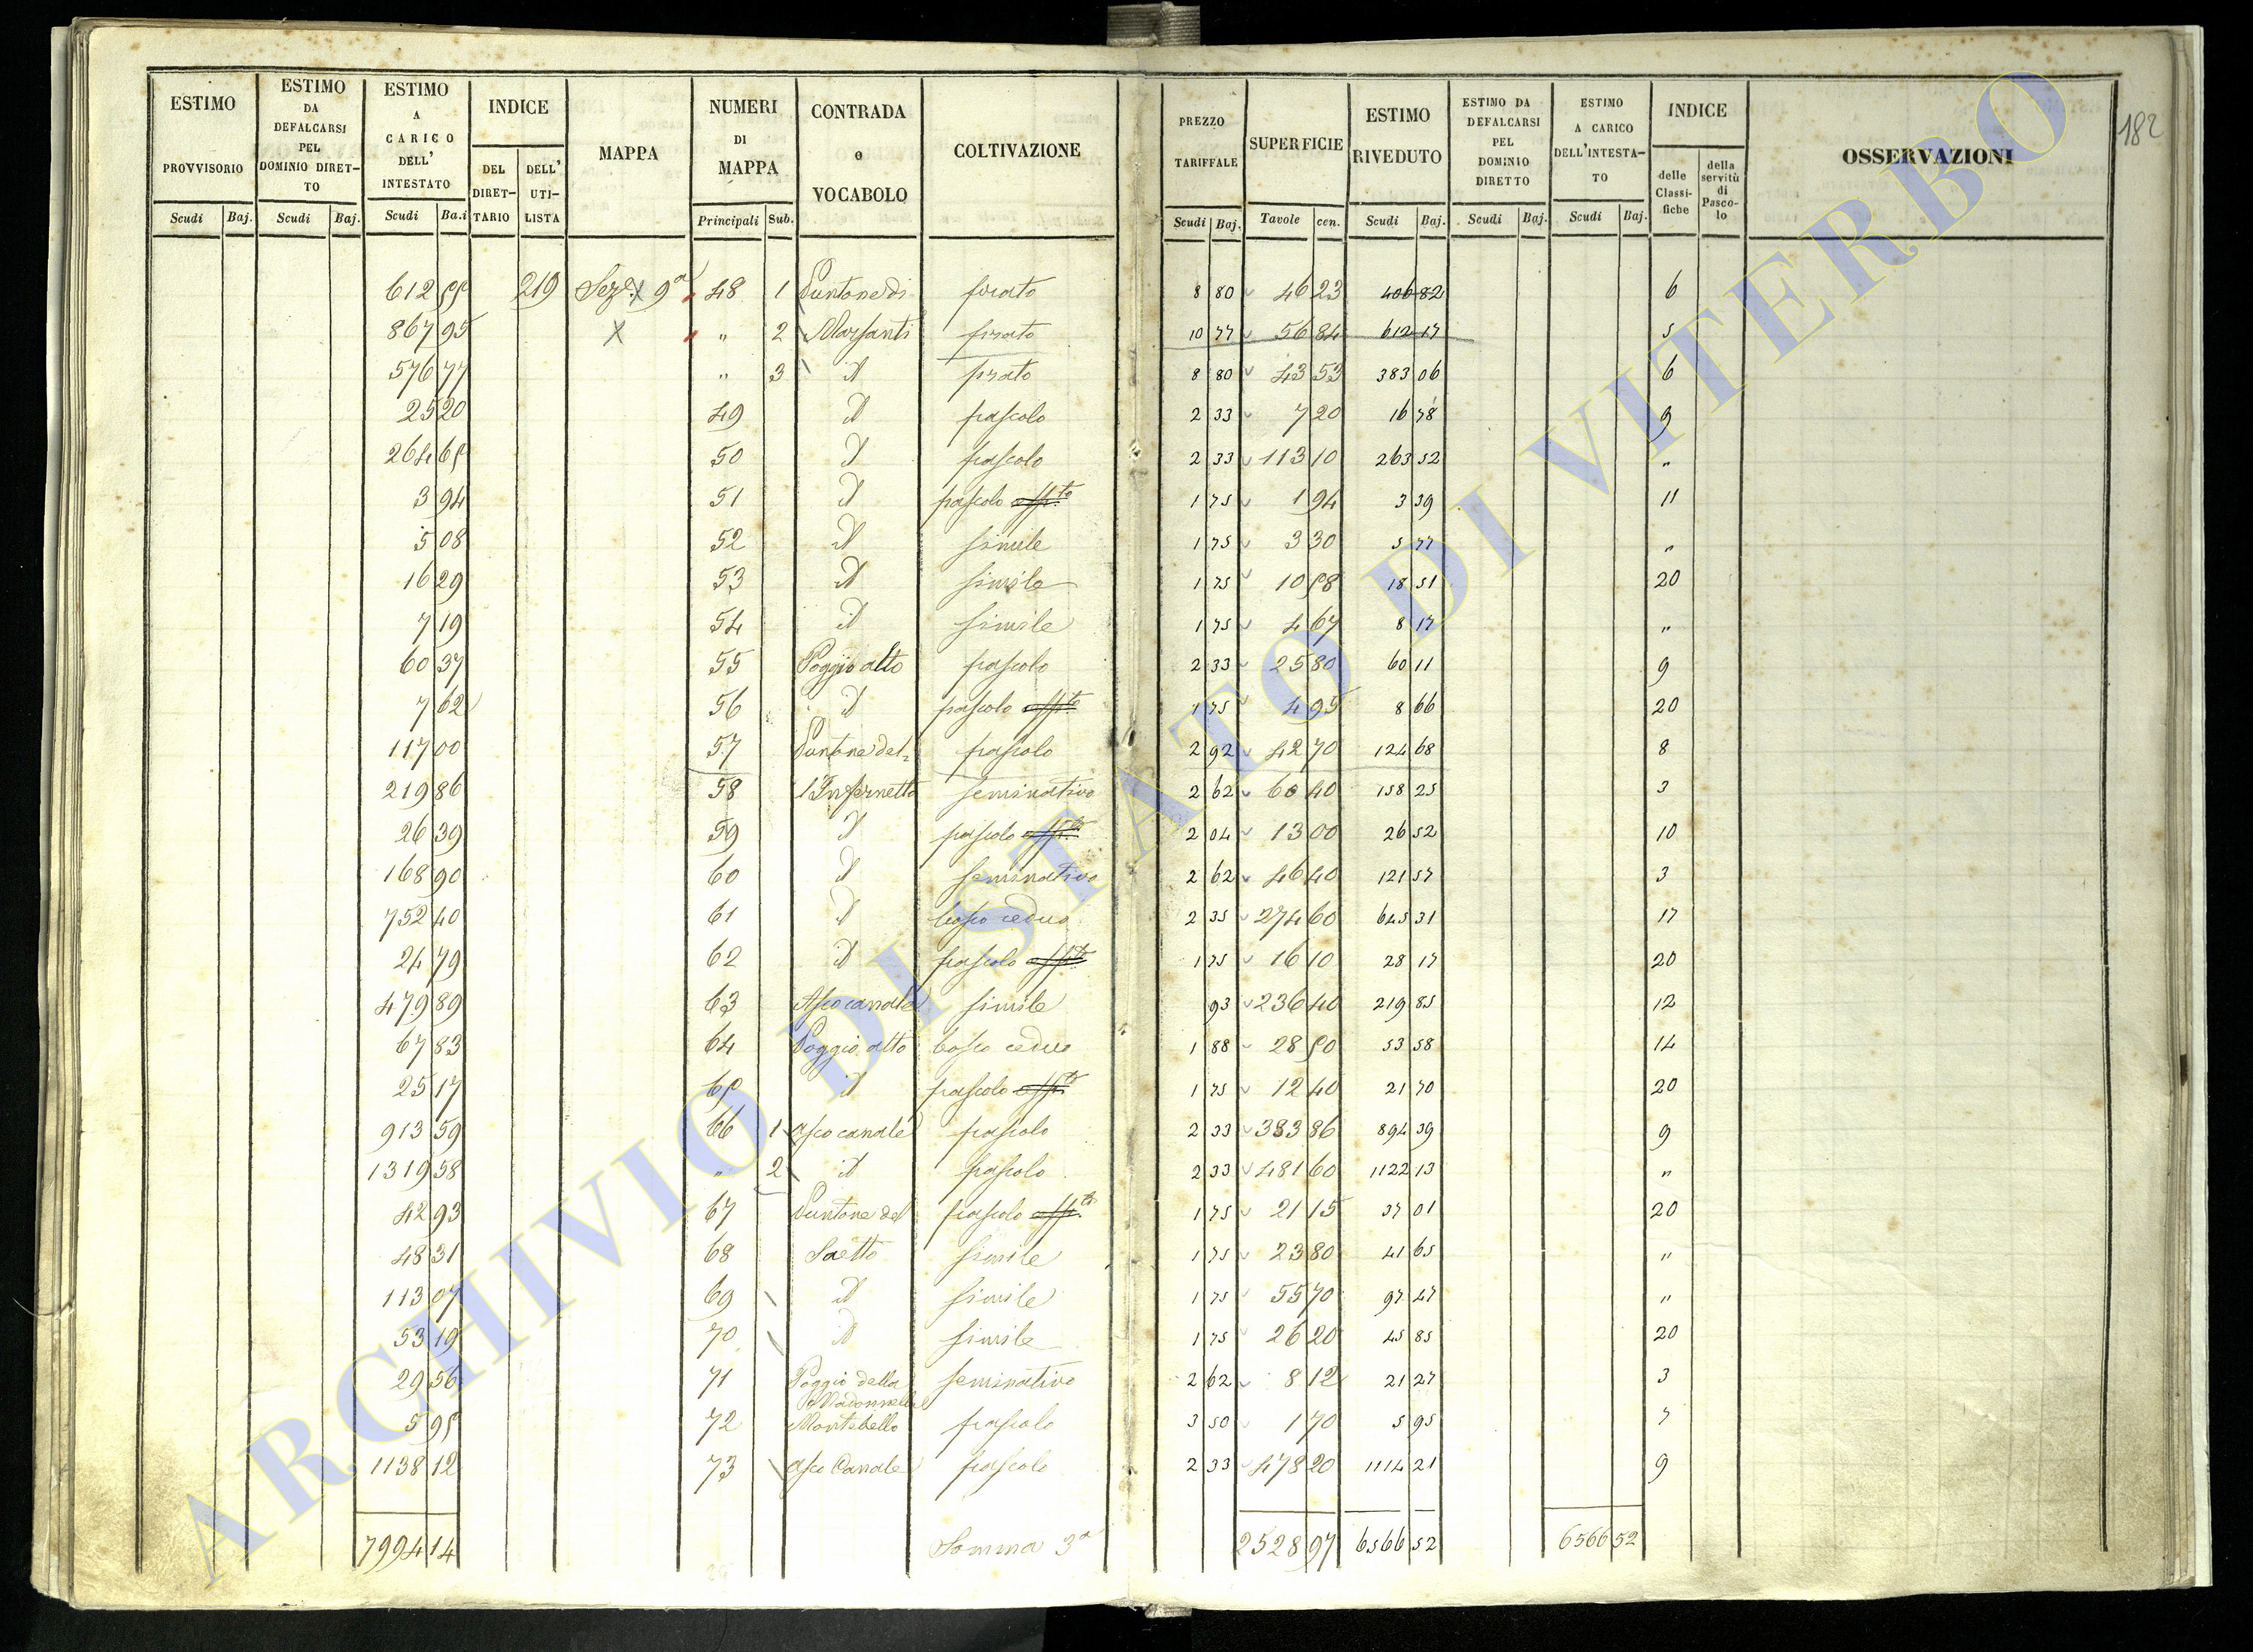 182
ESTIMO PROVVISORIO Scudi Baj. ESTIMO DA DEFALCARSI PEL DOMINIO DIRET-TO Scudi Baj. ESTIMO A CARICO DELL' INTESTATO Scudi Ba.i INDICE DEL DIRET-TARIO DELL' UTI-LISTA MAPPA NUMERI DI MAPPA Principali Sub. CONTRADA o VOCABOLO COLTIVAZIONE PREZZO TARIFFALE Scudi Baj. SUPERFICIE Tavole cen. ESTIMO RIVEDUTO Scudi Baj. ESTIMO DA DEFALCARSI PEL DOMINIO DIRETTO Scudi Baj. ESTIMO A CARICO DELL'INTESTA-TO Scudi Baj. INDICE delle Classi-fiche della servitù di Pasco-lo OSSERVAZIONI
612 55 219 Seze. X 9a 48 1 Puntone di prato 8 80 46 23 406 82 6
867 95 X " 2 Marsanti prato 10 77 56 84 612 17 5
576 77 " 3 id prato 8 80 43 53 383 06 6
25 20 49 id pascolo 2 33 7 20 16 78 9
264 65 50 id pascolo 2 33 113 10 263 52 "
3 94 51 id pascolo 1 75 1 94 3 39 11
5 08 52 id simile 1 75 3 30 5 77 "
16 29 53 id simile 1 75 10 58 18 51 20
7 19 54 id simile 1 75 4 67 8 17 "
60 37 55 Poggio alto pascolo 2 33 25 80 60 11 9
7 62 56 id pascolo 1 75 4 95 8 66 20
117 00 57 Puntone del= pascolo 2 92 42 70 124 68 8
219 86 58 l'Infernetto seminativo 2 62 60 40 158 25 3
26 39 59 id pascolo 2 04 13 00 26 52 10
168 90 60 id seminativo 2 62 46 40 121 57 3
752 40 61 id bosco ceduo 2 35 274 60 645 31 17
24 79 62 id pascolo 1 75 16 10 28 17 20
479 89 63 Asco canale simile 93 236 40 219 85 12
67 83 64 Poggio alto bosco ceduo 1 88 28 50 53 58 14
25 17 65 id pascolo 1 75 12 40 21 70 20
913 59 66 1 asco canale pascolo 2 33 383 86 894 39 9
1319 58 " 2 id pascolo 2 33 481 60 1122 13 "
42 93 67 Puntone del pascolo 1 75 21 15 37 01 20
48 31 68 Saetto simile 1 75 23 80 41 65 "
113 07 69 id simile 1 75 55 70 97 47 "
53 19 70 id simile 1 75 26 20 45 85 20
29 56 71 Poggio della Madonnella seminativo 2 62 8 12 21 27 3
5 95 72 Montebello pascolo 3 50 1 70 5 95 7
1138 12 73 asco Canale pascolo 2 33 478 20 1114 21 9
7994 14 Somma 3a 2528 97 6566 52 6566 52
ARCHIVIO DI STATO DI VITERBO